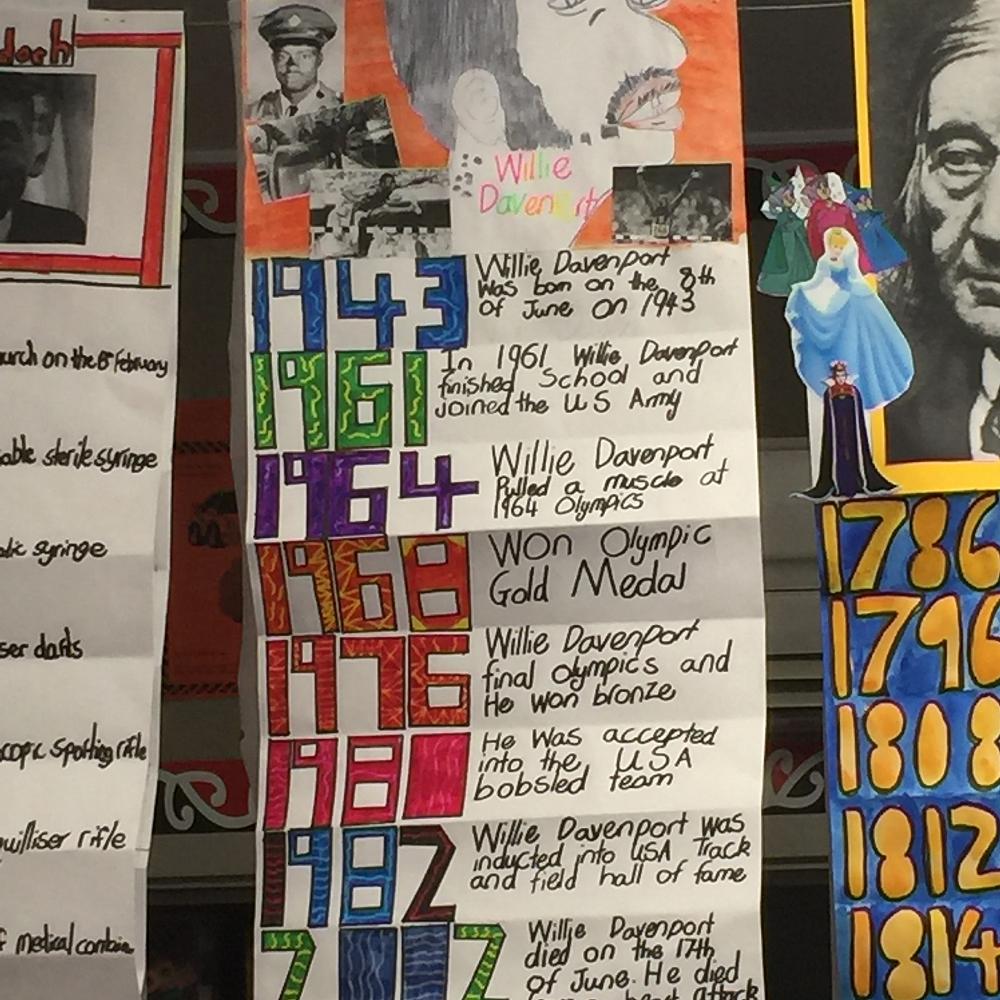 doch
urch on the 8th February
able sterile syringe
otic syringe
ser darts
copic spotting rifle
quilliser rifle
f medical combin
Willie
Davenport
1943
Willie Davenport
was born on the 8th
of June on 1943
1961
In 1961 Willie Davenport
finished School and
joined the US Army
1964
Willie Davenport
Pulled a muscle at
1964 Olympics
1968
Won Olympic
Gold Medal
1976
Willie Davenport
final Olympics and
He won bronze
1980
He was accepted
into the USA
bobsled team
1982
Willie Davenport was
inducted into USA Track
and field hall of fame
2002
Willie Davenport
died on the 17th
of June. He died
heart attack
1786
1796
1808
1812
1814